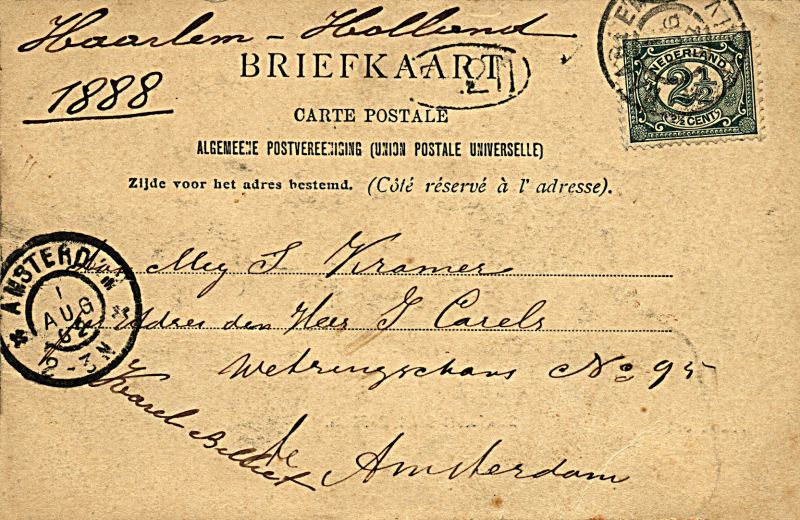 Haarlem - Holland
1888
BRIEFKAART
CARTE POSTALE
ALGEMEENE POSTVEREENIGING (UNION POSTALE UNIVERSELLE)
Zijde voor het adres bestemd. (Côté réservé à l'adresse).
NEDERLAND
2½
(2½ CENT)
AMSTERDAM
1
AUG
Aan Mej S Kramer
Adres den Heer J Carels
Wetringschans No 95
te Amsterdam
Karel Belliet